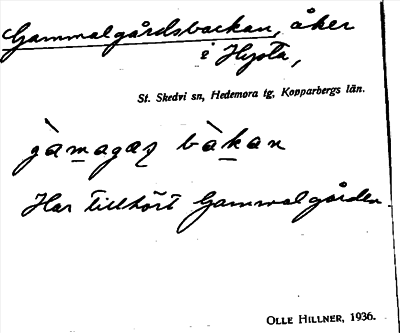 Gammalgårdsbackan, åker
i Hysta,
St. Skedvi sn, Hedemora tg, Kopparbergs län.
bàkan
Har tillhört Gammalgården
OLLE HILLNER, 1936.